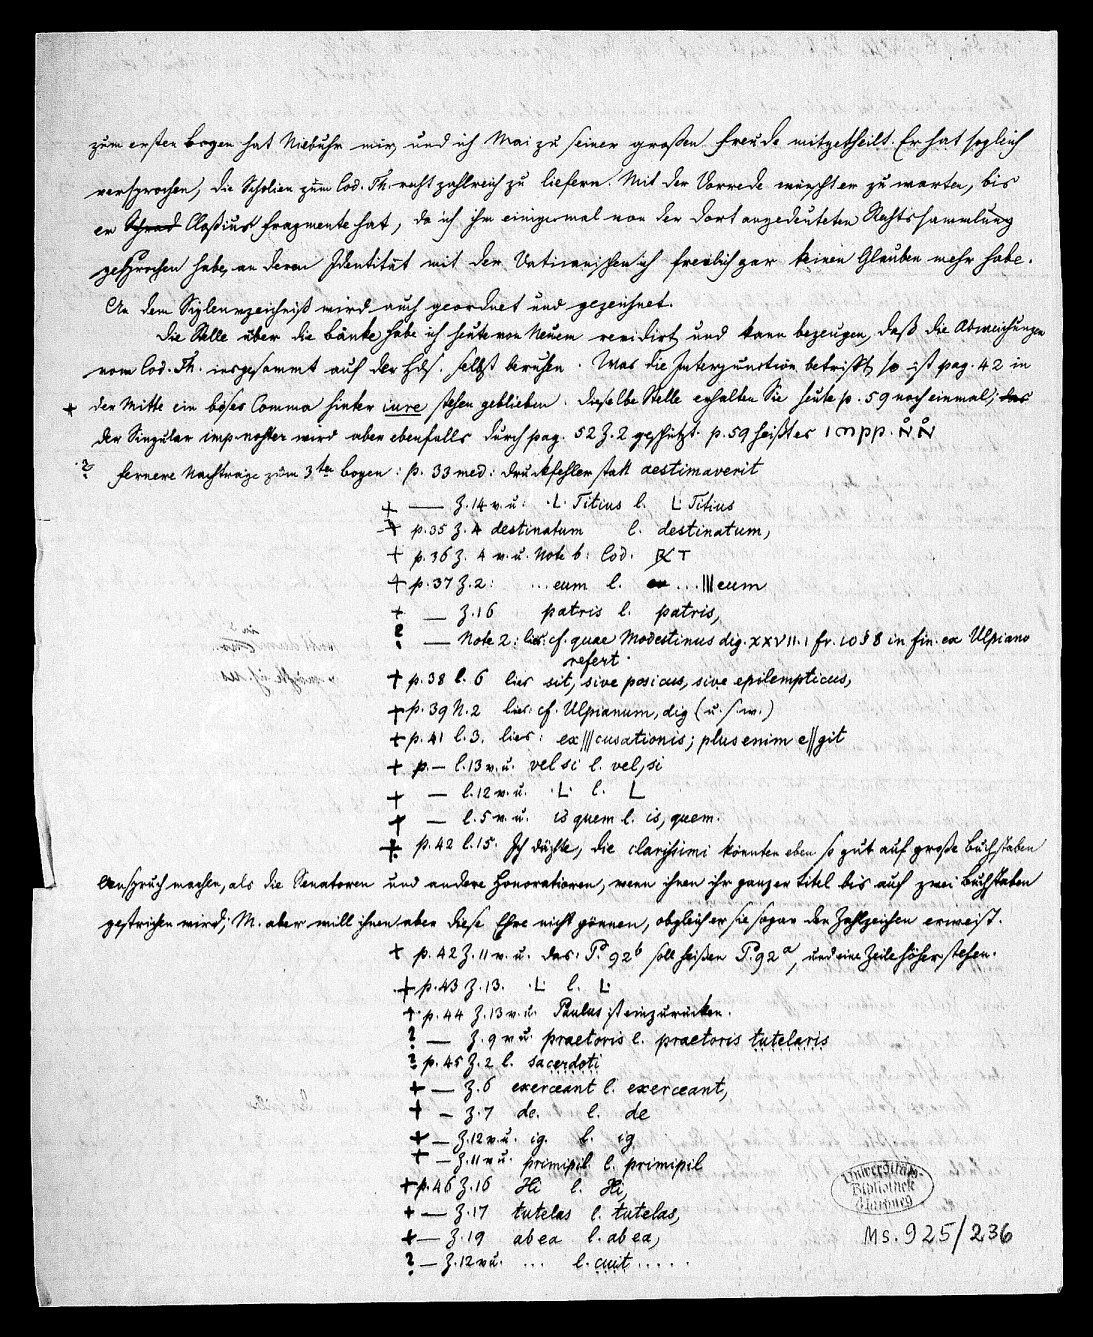 zum ersten Bogen hat Niebuhr mir, und ich Mai zu seiner großen Freude mitgetheilt. Er hat sogleich
versprochen, die Scholien zum Cod. Th. recht zahlreich zu liefern. Mit der Vorrede wünscht er zu warten, bis
er Cloßius' Fragmente hat, da ich ihm einigemal von der dort angedeuteten Rechtssammlung
gesprochen habe, an deren Identität mit der Vaticanischen ich freilich gar keinen Glauben mehr habe.
An dem Siglenverzeichniß wird auch geordnet und gezeichnet.
Die Stelle über die Bänke habe ich heute von Neuem revidirt und kann bezeugen, daß die Abweichungen
vom Cod. Th. insgesammt auf der Hds. selbst beruhen. Was die Interpunction betrifft, so ist pag. 42 in
+ der Mitte ein böses Comma hinter iure stehen geblieben. Dieselbe Stelle erhalten Sie heute p. 59 noch einmal; das
der Singular imp. noster wird aber ebenfalls durch pag. 52 Z. 2 geschützt. p. 59 heißt es impp. N̊ N̊
? Fernere Nachträge zum 3ten Bogen: p. 33 med: Druckfehler statt aestimaverit
+ — Z. 14 v. u. ·L· Titius l. L Titius
+ p. 35 Z. 4 destinatum l. destinatum,
+ p. 36 Z. 4 v. u. Note b: Cod.
+ p. 37 Z. 2: ...eum l. ...|||eum
+ — Z. 16 patris l. patris,
? — Note 2: lies: cf. quae Modestinus dig. XXVII. 1 fr. 10 § 8 in fin. ex Ulpiano
refert.
+ p. 38 l. 6 lies sit, sive posicus, sive epilempticus,
+ p. 39 N. 2 lies: cf. Ulpianum, dig (u. s. w.)
+ p. 41 l. 3. lies: ex|||cusationis; plus enim e||git
+ p. — l. 13 v. u. vel si l. vel, si
+ — l. 12 v. u. ·L· l. L
+ — l. 5 v. u. is quem l. is, quem.
+ p. 42 l. 15. Ich dächte, die clarissimi könnten eben so gut auf große Buchstaben
Anspruch machen, als die Senatoren und andere Honoratioren, wenn ihnen ihr ganzer Titel bis auf zwei Buchstaben
gestrichen wird; M. aber will ihnen aber diese Ehre nicht gönnen, obgleich er sie sogar den Zahlzeichen erweist.
+ p. 42 Z. 11 v. u. das: P. 92b soll heißen P. 92a, und eine Zeile höher stehen.
+ p. 43 Z. 13. ·L· l. L·
+ p. 44 Z. 13 v. u. Paulus ist einzurücken.
? — Z. 9 v. u. praetoris l. praetoris tutelaris
? p. 45 Z. 2 l. sacerdoti
+ — Z. 6 exerceant l. exerceant,
+ — Z. 7 de. l. de
+ — Z. 12 v. u. ig. l. ig
+ — Z. 11 v. u. primipil. l. primipil
+ p. 46 Z. 16 Hi l. Hi,
+ — Z. 17 tutelas l. tutelas,
+ — Z. 19 ab ea l. ab ea,
? — Z. 12 v. u. ... l. cuit .....
Universitäts-
Bibliothek
Marburg
Ms. 925/236